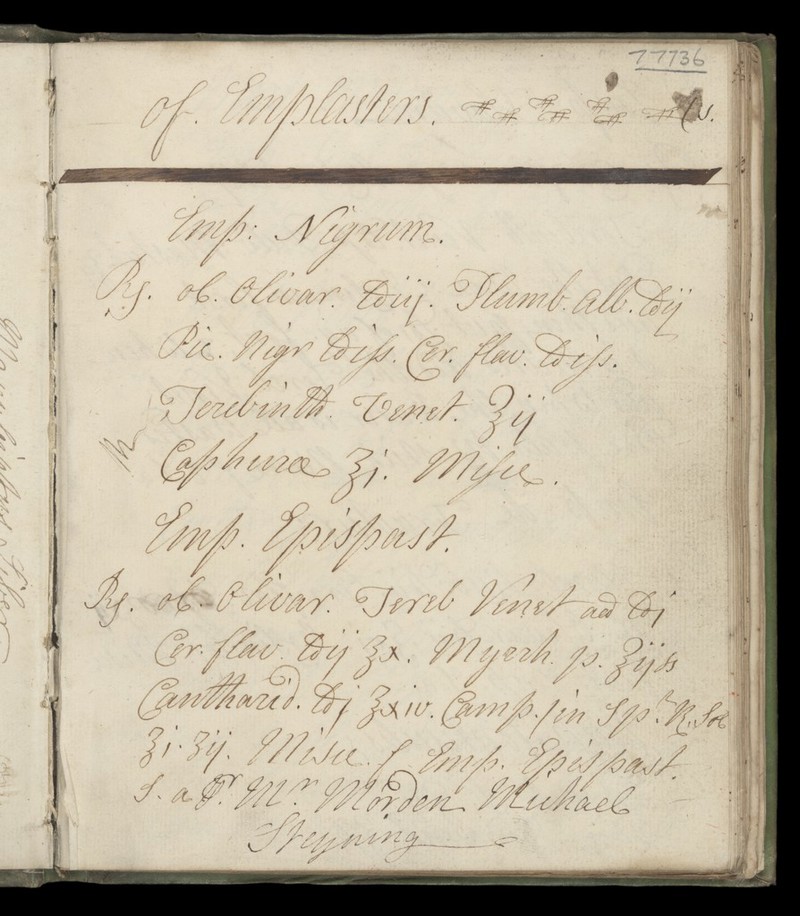 77736
of. Emplasters.
Emp: Nigrum.
℞. ol. Olivar. ℔iij. Plumb. alb. ℔ij
Pic. Nigr ℔iſs. Cer. flav. ℔iſs.
Terebinth. Venet. ℥ij
Caphuræ ℥j. Misce.
Emp. Epispast.
℞. ol. Olivar. Tereb Venet aa ℔j
Cer. flav. ℔ij ℥x. Myrrh. p. ℥ijss
Cantharid. ℔j ℥xiv. Camp. in Spt. R. Sol
℥j. ℥ij. Misce. f Emp. Epispast.
Mr. Morden Michael
Steyning